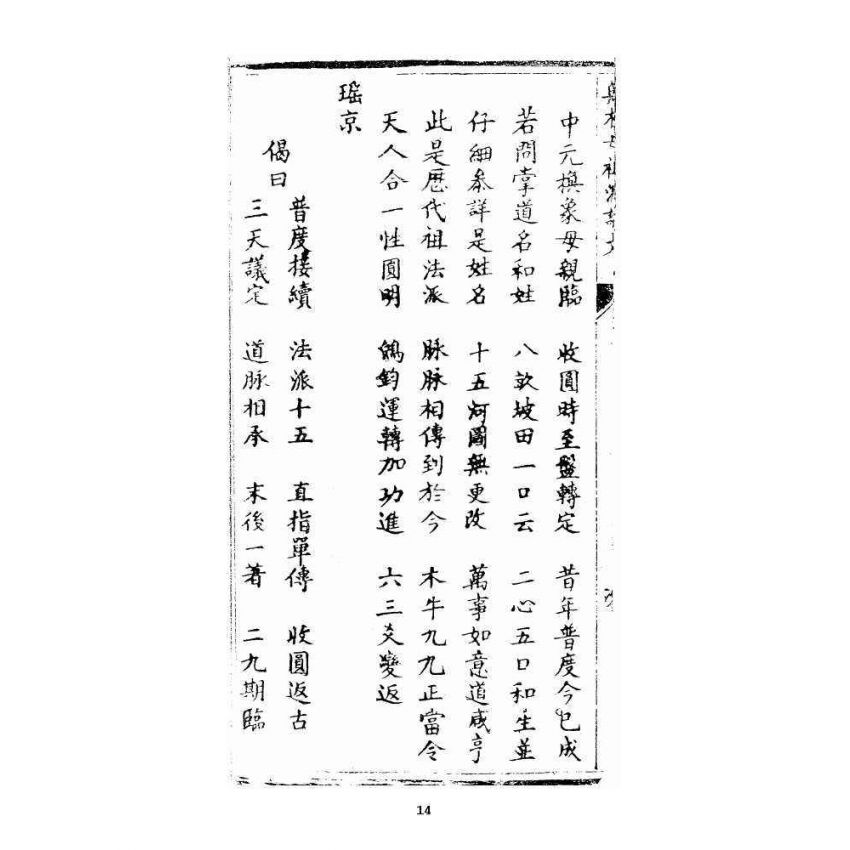 中元換象母親臨 收圓時至盤轉定 昔年普度今已成
若問掌道名和姓 八畝坡田一口云 二心五口和生並
仔細参詳是姓名 十五河圖無更改 萬事如意道咸亨
此是歷代祖法派 脉脉相傳到於今 木牛九九正當令
天人合一性圓明 鴻鈞運轉加功進 六三爻變返
瑶京
偈曰
普度接續 法派十五 直指單傳 收圓返古
三天議定 道脉相承 末後一著 二九期臨
14